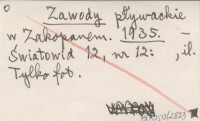 Zawody pływackie
w Zakopanem. 1935. –
Światowid 12, nr 12: , il.
Tylko fot.